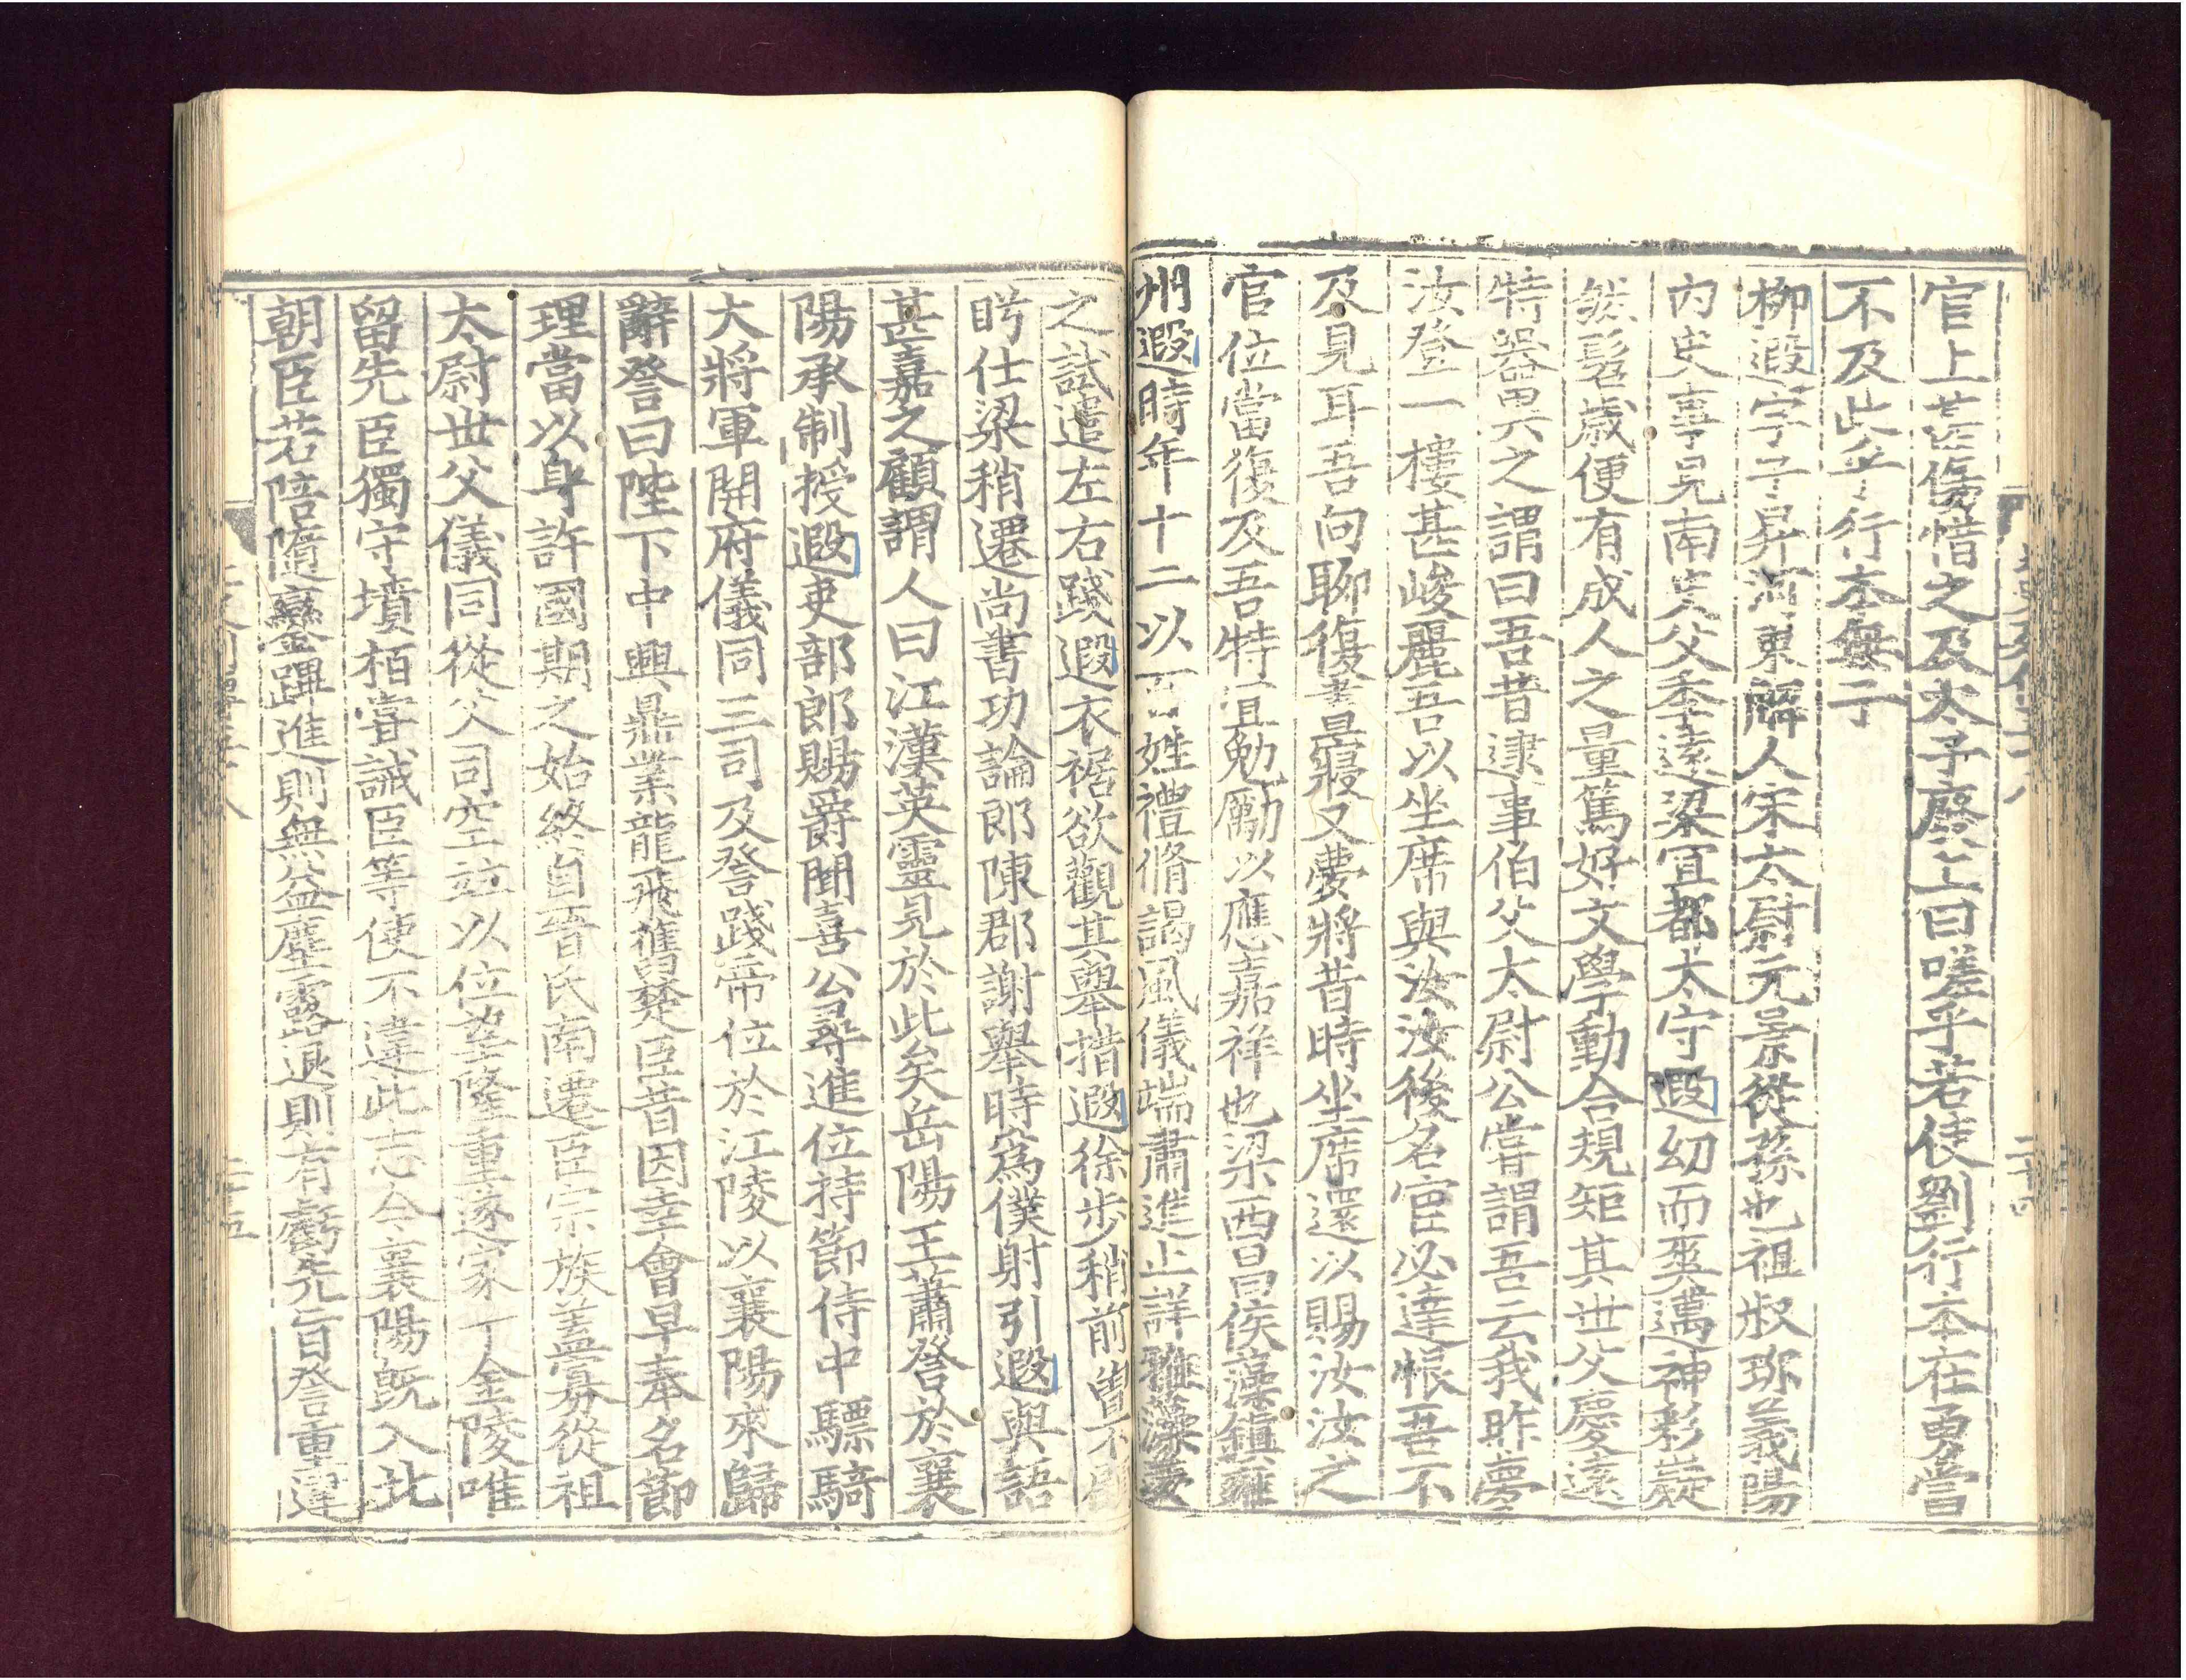 官上甚傷惜之及太子廢上曰嗟乎若使劉行本在勇當
不及此乎行本無子
柳遐字子昇河東解人宋太尉元景從孫也祖叔珍義陽
內史事見南史父季遠梁宜都太守遐幼而爽邁神彩嶷
然髫歲便有成人之量篤好文學動合規矩其世父慶遠
特器異之謂曰吾昔逮事伯父太尉公嘗謂吾云我昨夢
汝登一樓甚峻麗吾以坐席與汝汝後名宦必達恨吾不
及見耳吾向聊復晝寢又夢將昔時坐席還以賜汝汝之
官位當復及吾特宜勉勵以應嘉祥也梁西昌侯藻鎮雍
州遐時年十二以百姓禮脩謁風儀端肅進止詳雅藻羨
之試遣左右踐遐衣裾欲觀其舉措遐徐步稍前曾不顧
眄仕梁稍遷尚書功論郎陳郡謝舉時為僕射引遐與語
甚嘉之顧謂人曰江漢英靈見於此矣岳陽王蕭詧於襄
陽承制授遐吏部郎賜爵聞喜公尋進位持節侍中驃騎
大將軍開府儀同三司及詧踐帝位於江陵以襄陽來歸
辭詧曰陛下中興鼎業龍飛舊楚臣昔因幸會早奉名節
理當以身許國期之始終自晉氏南遷臣宗族蓋寡從祖
太尉世父儀同從父司空竝以位望隆重遂家于金陵唯
留先臣獨守墳栢嘗誡臣等使不違此志今襄陽既入北
朝臣若陪隨鑾蹕進則無益塵露退則有虧先旨詧重違